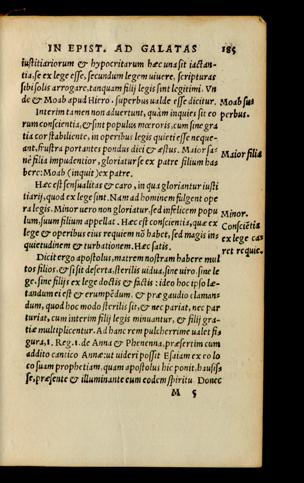 IN EPIST. AD GALATAS 185
iustitiariorum & hypocritarum hæc una sit iactan-
tia, se ex lege esse, secundum legem uiuere, scripturas
sibi solis arrogare, tanquam filij legis sint legitimi. Vn
de & Moab apud Hiero. superbus ualde esse dicitur. Moab su
Interim tamen non aduertunt, quàm inquies sit co perbus.
rum conscientia, & sint populus mœroris, cum sine gra
tia cor stabiliente, in operibus legis quieti esse neque-
ant, frustra portantes pondus diei & æstus. Maior sa- Maior filia
nè filia impudentior, gloriatur se ex patre filium ha-
bere: Moab (inquit) ex patre.
Hæc est sensualitas & caro, in qua gloriantur iusti
tiarij, quod ex lege sint. Nam ad hominem fulgent ope
ra legis. Minor uero non gloriatur, sed infelicem popu Minor.
lum, suum filium appellat. Hæc est conscientia, quæ ex Consciētia
lege & operibus eius requiem nō habet, sed magis in- ex lege ca
quietudinem & turbationem. Hæc satis. ret requie.
Dicit ergo apostolus, matrem nostram habere mul
tos filios, & si sit deserta, sterilis uidua, sine uiro, sine le
ge, sine filijs ex lege doctis & factis: ideo hoc ipso læ-
tandum ei est & erumpēdum, & præ gaudio claman-
dum, quod hoc modo sterilis sit, & nec pariat, nec par
turiat, cum interim filij legis minuantur, & filij gra-
tiæ multiplicentur. Ad hanc rem pulcherrime ualet fi=
gura, 1. Reg. 1. de Anna & Phenenna, præsertim cum
addito cantico Annæ: ut uideri possit Esaiam ex eo lo
co suam prophetiam, quam apostolus hic ponit, hausis
se, præsente & illuminante eum eodem spiritu Donec
M 5